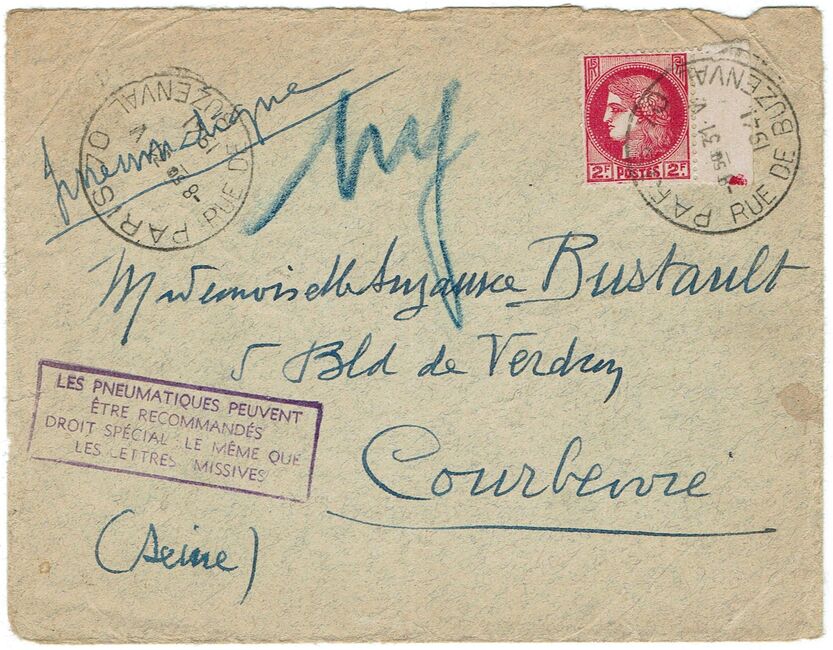 Pneumatique
PARIS 70 RUE DE BUZENVAL
1941
PARIS RUE DE BUZENVAL
31 V
1941
2F POSTES 2F
Mademoiselle Suzanne Bustault
5 Bld de Verdun
Courbevoie
(Seine)
LES PNEUMATIQUES PEUVENT
ÊTRE RECOMMANDÉS
DROIT SPÉCIAL : LE MÊME QUE
LES LETTRES MISSIVES